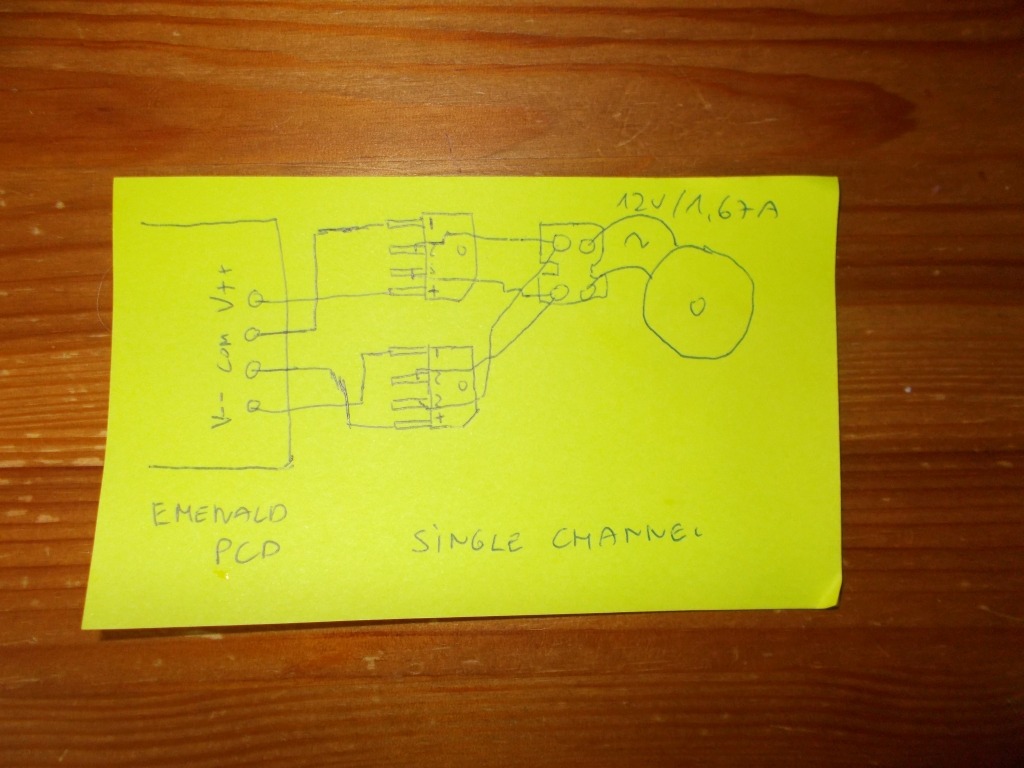 12V/1,67A
~
-
~
~
+
V++
COM
V--
-
~
~
+
EMERALD
PCD
SINGLE CHANNEL